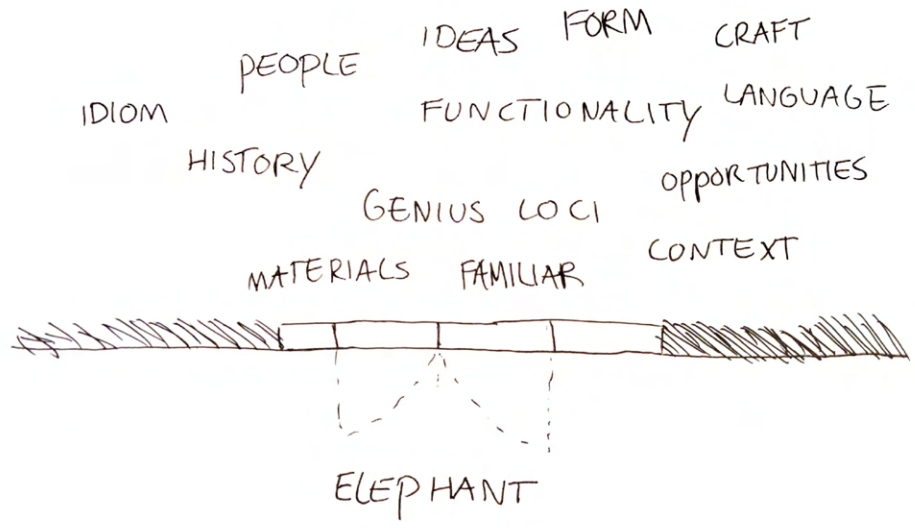 IDEAS FORM CRAFT
PEOPLE
IDIOM FUNCTIONALITY LANGUAGE
HISTORY OPPORTUNITIES
GENIUS LOCI
MATERIALS FAMILIAR CONTEXT
ELEPHANT